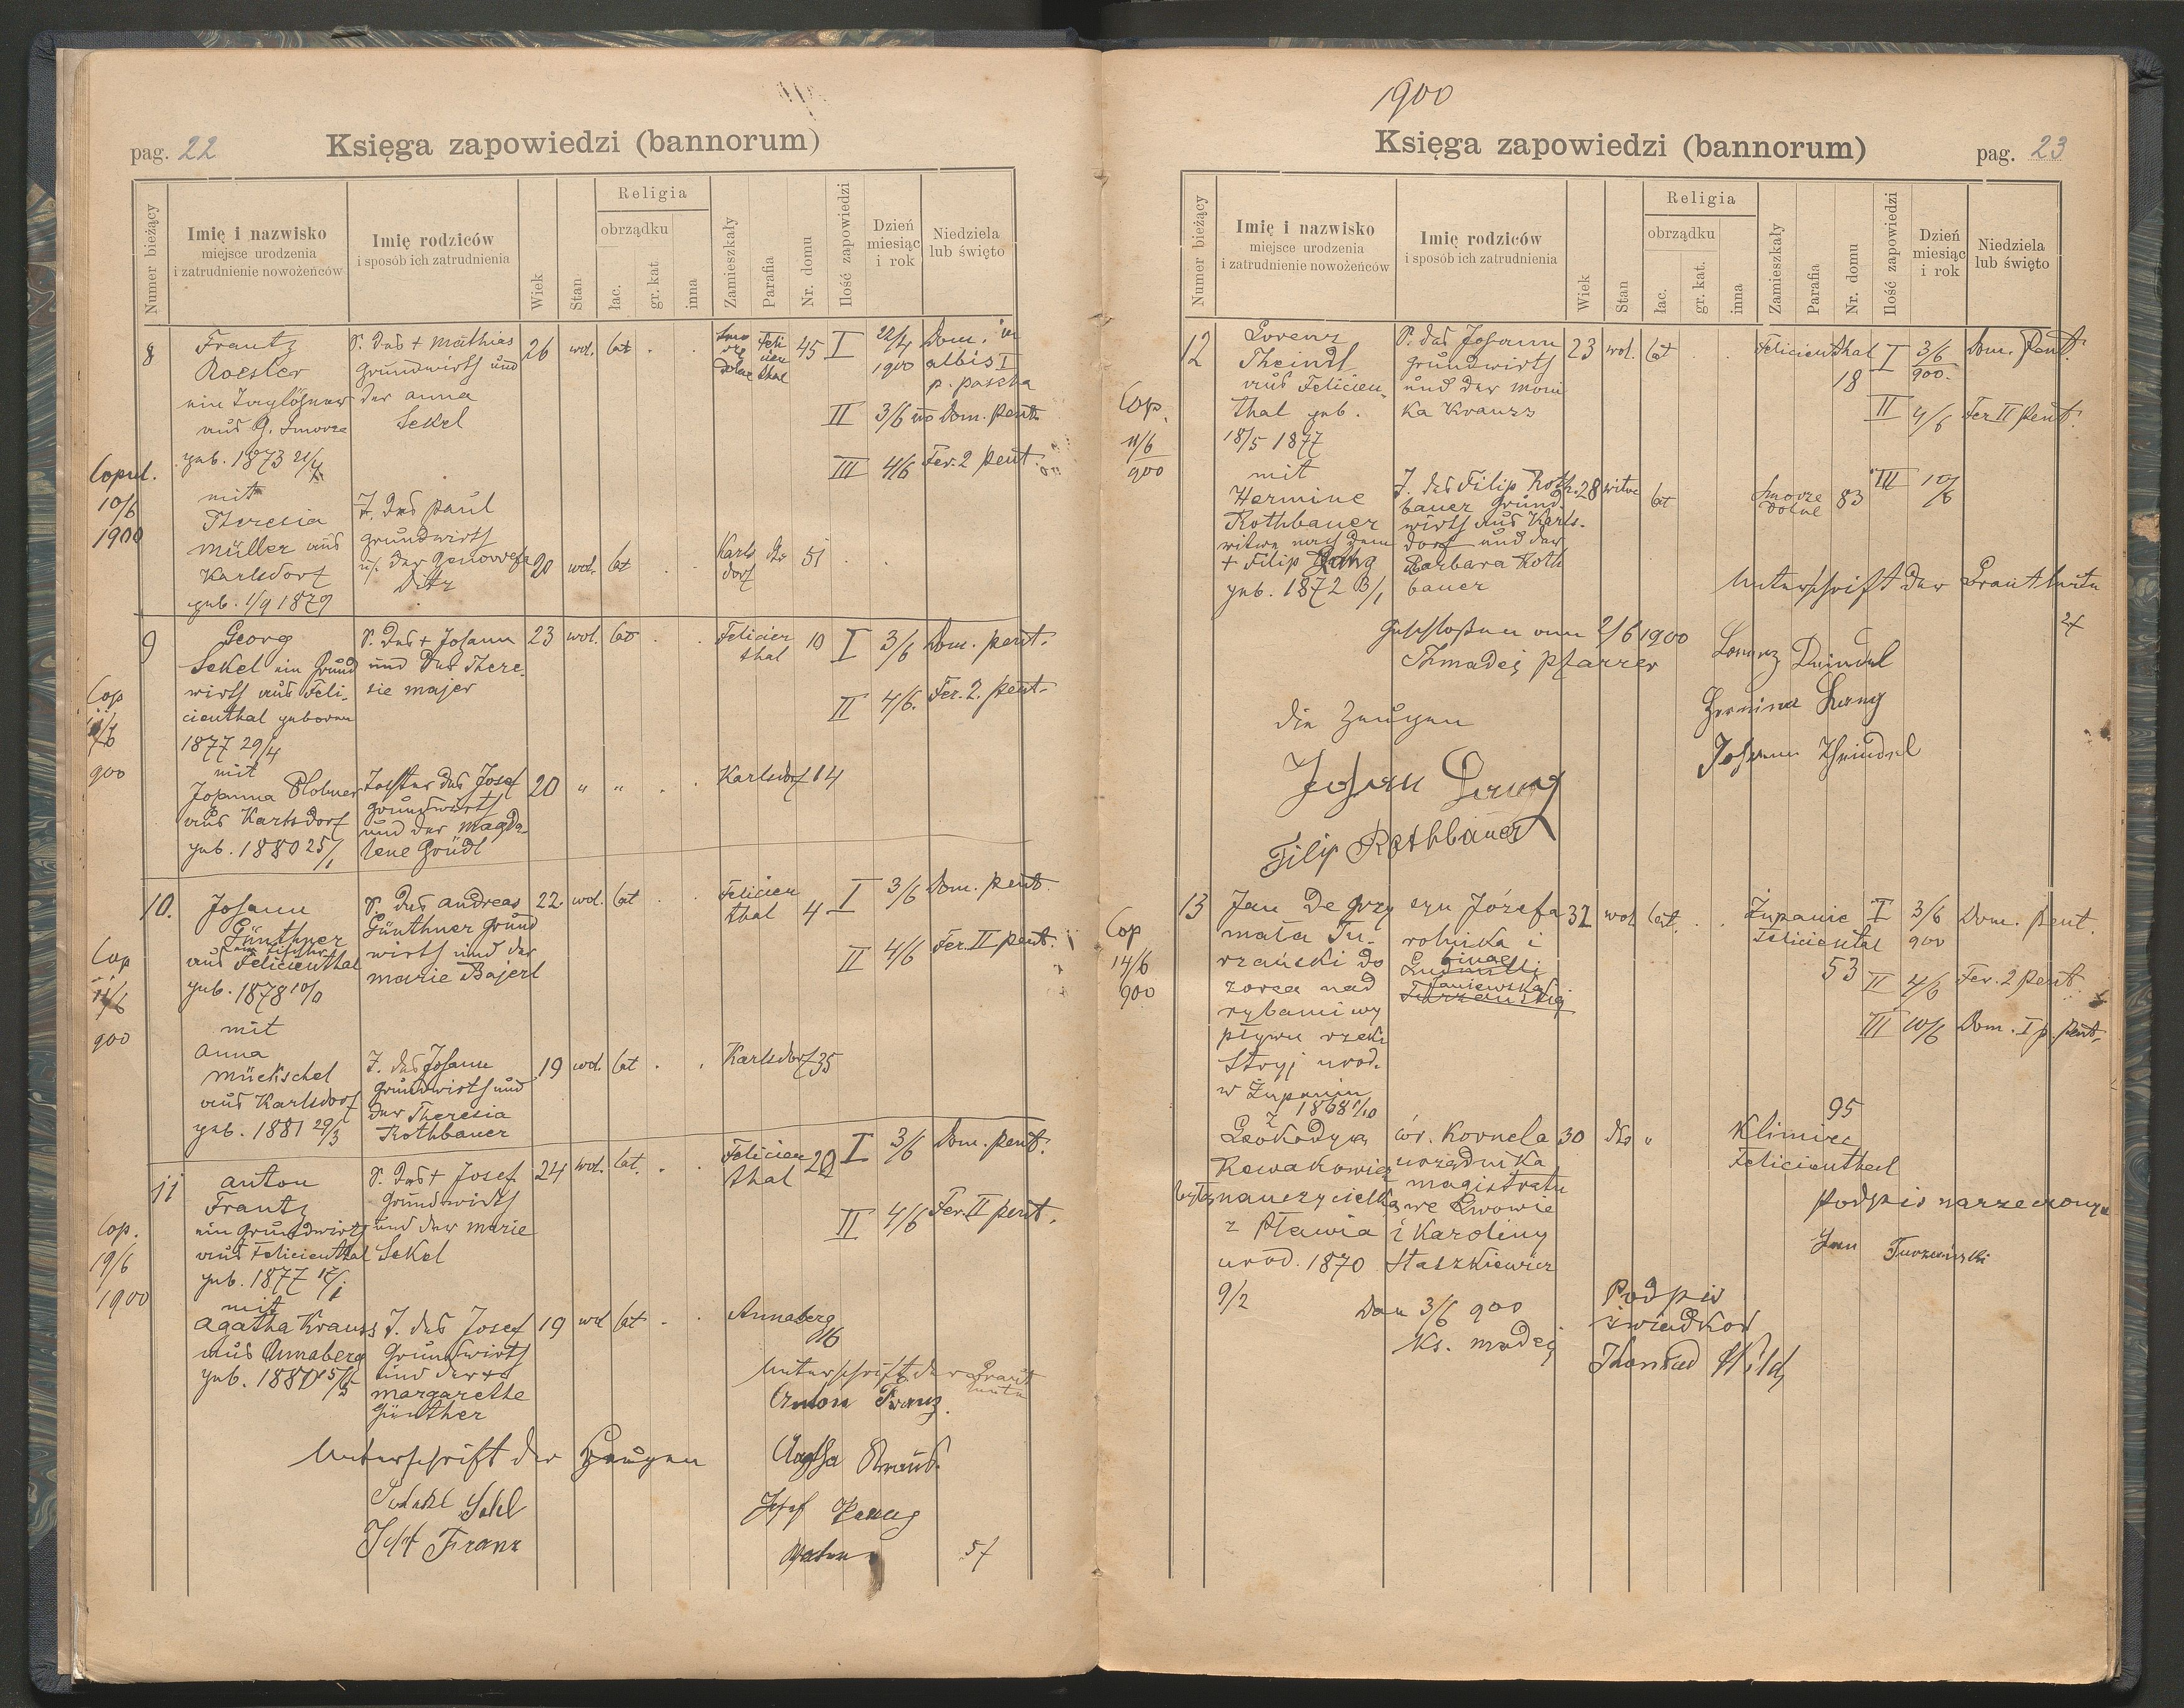 pag. 22
Księga zapowiedzi (bannorum)
Numer bieżący
Imię i nazwisko
miejsce urodzenia
i zatrudnienie nowożeńców
Imię rodziców
i sposób ich zatrudnienia
Wiek
Stan
Religia
obrządku
łac.
gr. kat.
inna
Zamieszkały
Parafia
Nr. domu
Ilość zapowiedzi
Dzień
miesiąc
i rok
Niedziela
lub święto
8
Frantz
Roesler
ein Taglöhner
aus G. Smorze
geb. 1873 21/7
mit
Theresia
Müller aus
Karlsdorf
geb. 1/9 1879
S. des + Mathias
Grundwirth und
der Anna
Sekel
T. des Paul
Grundwirth
u. der Genowefa
Ditz
26 wol. lat
Smo
rze
Dolne
Feli
cien
thal
45 I 22/4
1900
Dom. in
albis I
p. pascha
II 3/6 900 Dom. Pent.
III 4/6 Fer. 2 Pent.
Copul.
10/6
1900
20 wol. lat
Karls
dorf
dto 51
9
Georg
Sekel ein Grund
wirth aus Feli-
cienthal geboren
1877 29/4
mit
Johanna
aus Karlsdorf
geb. 1880 25/1
S. des + Johann
und der There
sie Majer
Tochter des Josef
Grundwirth
und der Magda
lene Gründl
23 wol. lat
Felicien
thal
10 I 3/6 Dom. Pent.
II 4/6. Fer. 2. Pent.
Cop
11/6
900
20 " "
Karlsdorf 14
10.
Johann
Günthner
aus Felicienthal
geb. 1878
mit
Anna
Mückschel
aus Karlsdorf
geb. 1881 29/3
S. des Andreas
Günthner Grund
wirth und der
Marie Bajerl
T. des Johann
Grundwirth und
der Theresia
Rothbauer
22 wol. lat
Felicien
thal
4 I 3/6 Dom. Pent.
II 4/6 Fer. II Pent.
Cop
11/6
900
19 wol. lat
Karlsdorf 35
11
Anton
Frantz
ein Grundwirth
aus Felicienthal
geb. 1877
mit
Agatha Krauss
aus Annaberg
geb. 1880
S. des + Josef
Grundwirth
und der Marie
Sekel
T. des Josef
Grundwirth
und der +
Margarethe
Günther
24 wol. lat.
Felicien
thal
20 I 3/6 Dom. Pent.
II 4/6 Fer. II Pent.
Cop.
19/6
1900
19 wol lat
Annaberg
Unterschrift der Braut
leute
Anton Franz
Unterschrift der Zeugen
Josef Franz
1900
Księga zapowiedzi (bannorum)
pag. 23
Numer bieżący
Imię i nazwisko
miejsce urodzenia
i zatrudnienie nowożeńców
Imię rodziców
i sposób ich zatrudnienia
Wiek
Stan
Religia
obrządku
łac.
gr. kat.
inna
Zamieszkały
Parafia
Nr. domu
Ilość zapowiedzi
Dzień
miesiąc
i rok
Niedziela
lub święto
12
Lorenz
Theindl
aus Felicien-
thal geb.
18/5 1877
mit
Hermine
Rothbauer
witwe nach dem
+ Filip Lang
geb. 1872
S. des Johann
Grundwirth
und der Moni
ka Krauss
T. des Filip Roth-
bauer Grund-
wirth aus Karls-
dorf und der
Barbara Roth
bauer
23 wol. lat
Felicienthal
18
I 3/6
900.
Dom. Pent.
II 4/6 Fer II Pent.
III 10/6
Cop.
11/6
900
28 witwe lat
Smorze
Dolne
83
Unterschrift der Brautleute
Geschlossen am 2/6 1900
Pfarrer
Hermina Lang
Johann Theindel
die Zeugen
Johann Lang
Filip Rothbauer
13
Jan De Grzy
mała Tu-
rzański do
zorca nad
rybami wy
pływu rzeki
Stryj urod.
w Żupaniu
1868
syn Józefa
rolnika i
32 wol lat.
Żupanie
Feliciental
53
I 3/6
900
Dom. Pent.
II 4/6 Fer. 2 Pent.
III 10/6 Dom. I p. Pent.
Cop
14/6
900
z
Leokadya
Nowakowicz
była nauczycielka
z Pławia
urod. 1870
9/2
cór. Kornela
urzędnika
magistratu
we Lwowie
i Karoliny
Staszkiewicz
30 dto "
95
Klimiec
Felicienthal
Podpis narzeczonych
Jan Turzański
Dan 3/6 900
Ks. Madej
Podpis
świadków